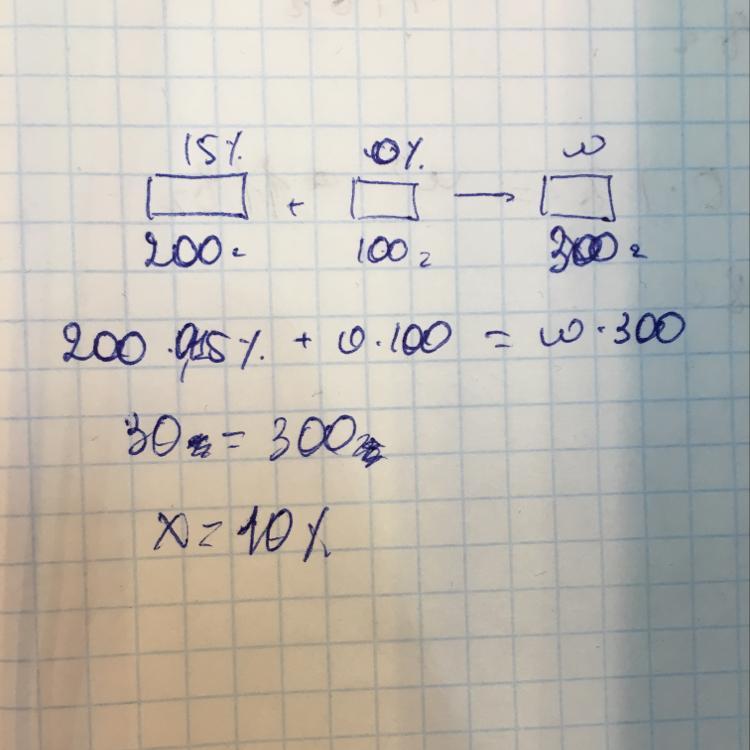 15% 0% ω
+ →
200г 100г 300г
200 · 0,15% + 0 · 100 = ω · 300
30 = 300
x = 10%